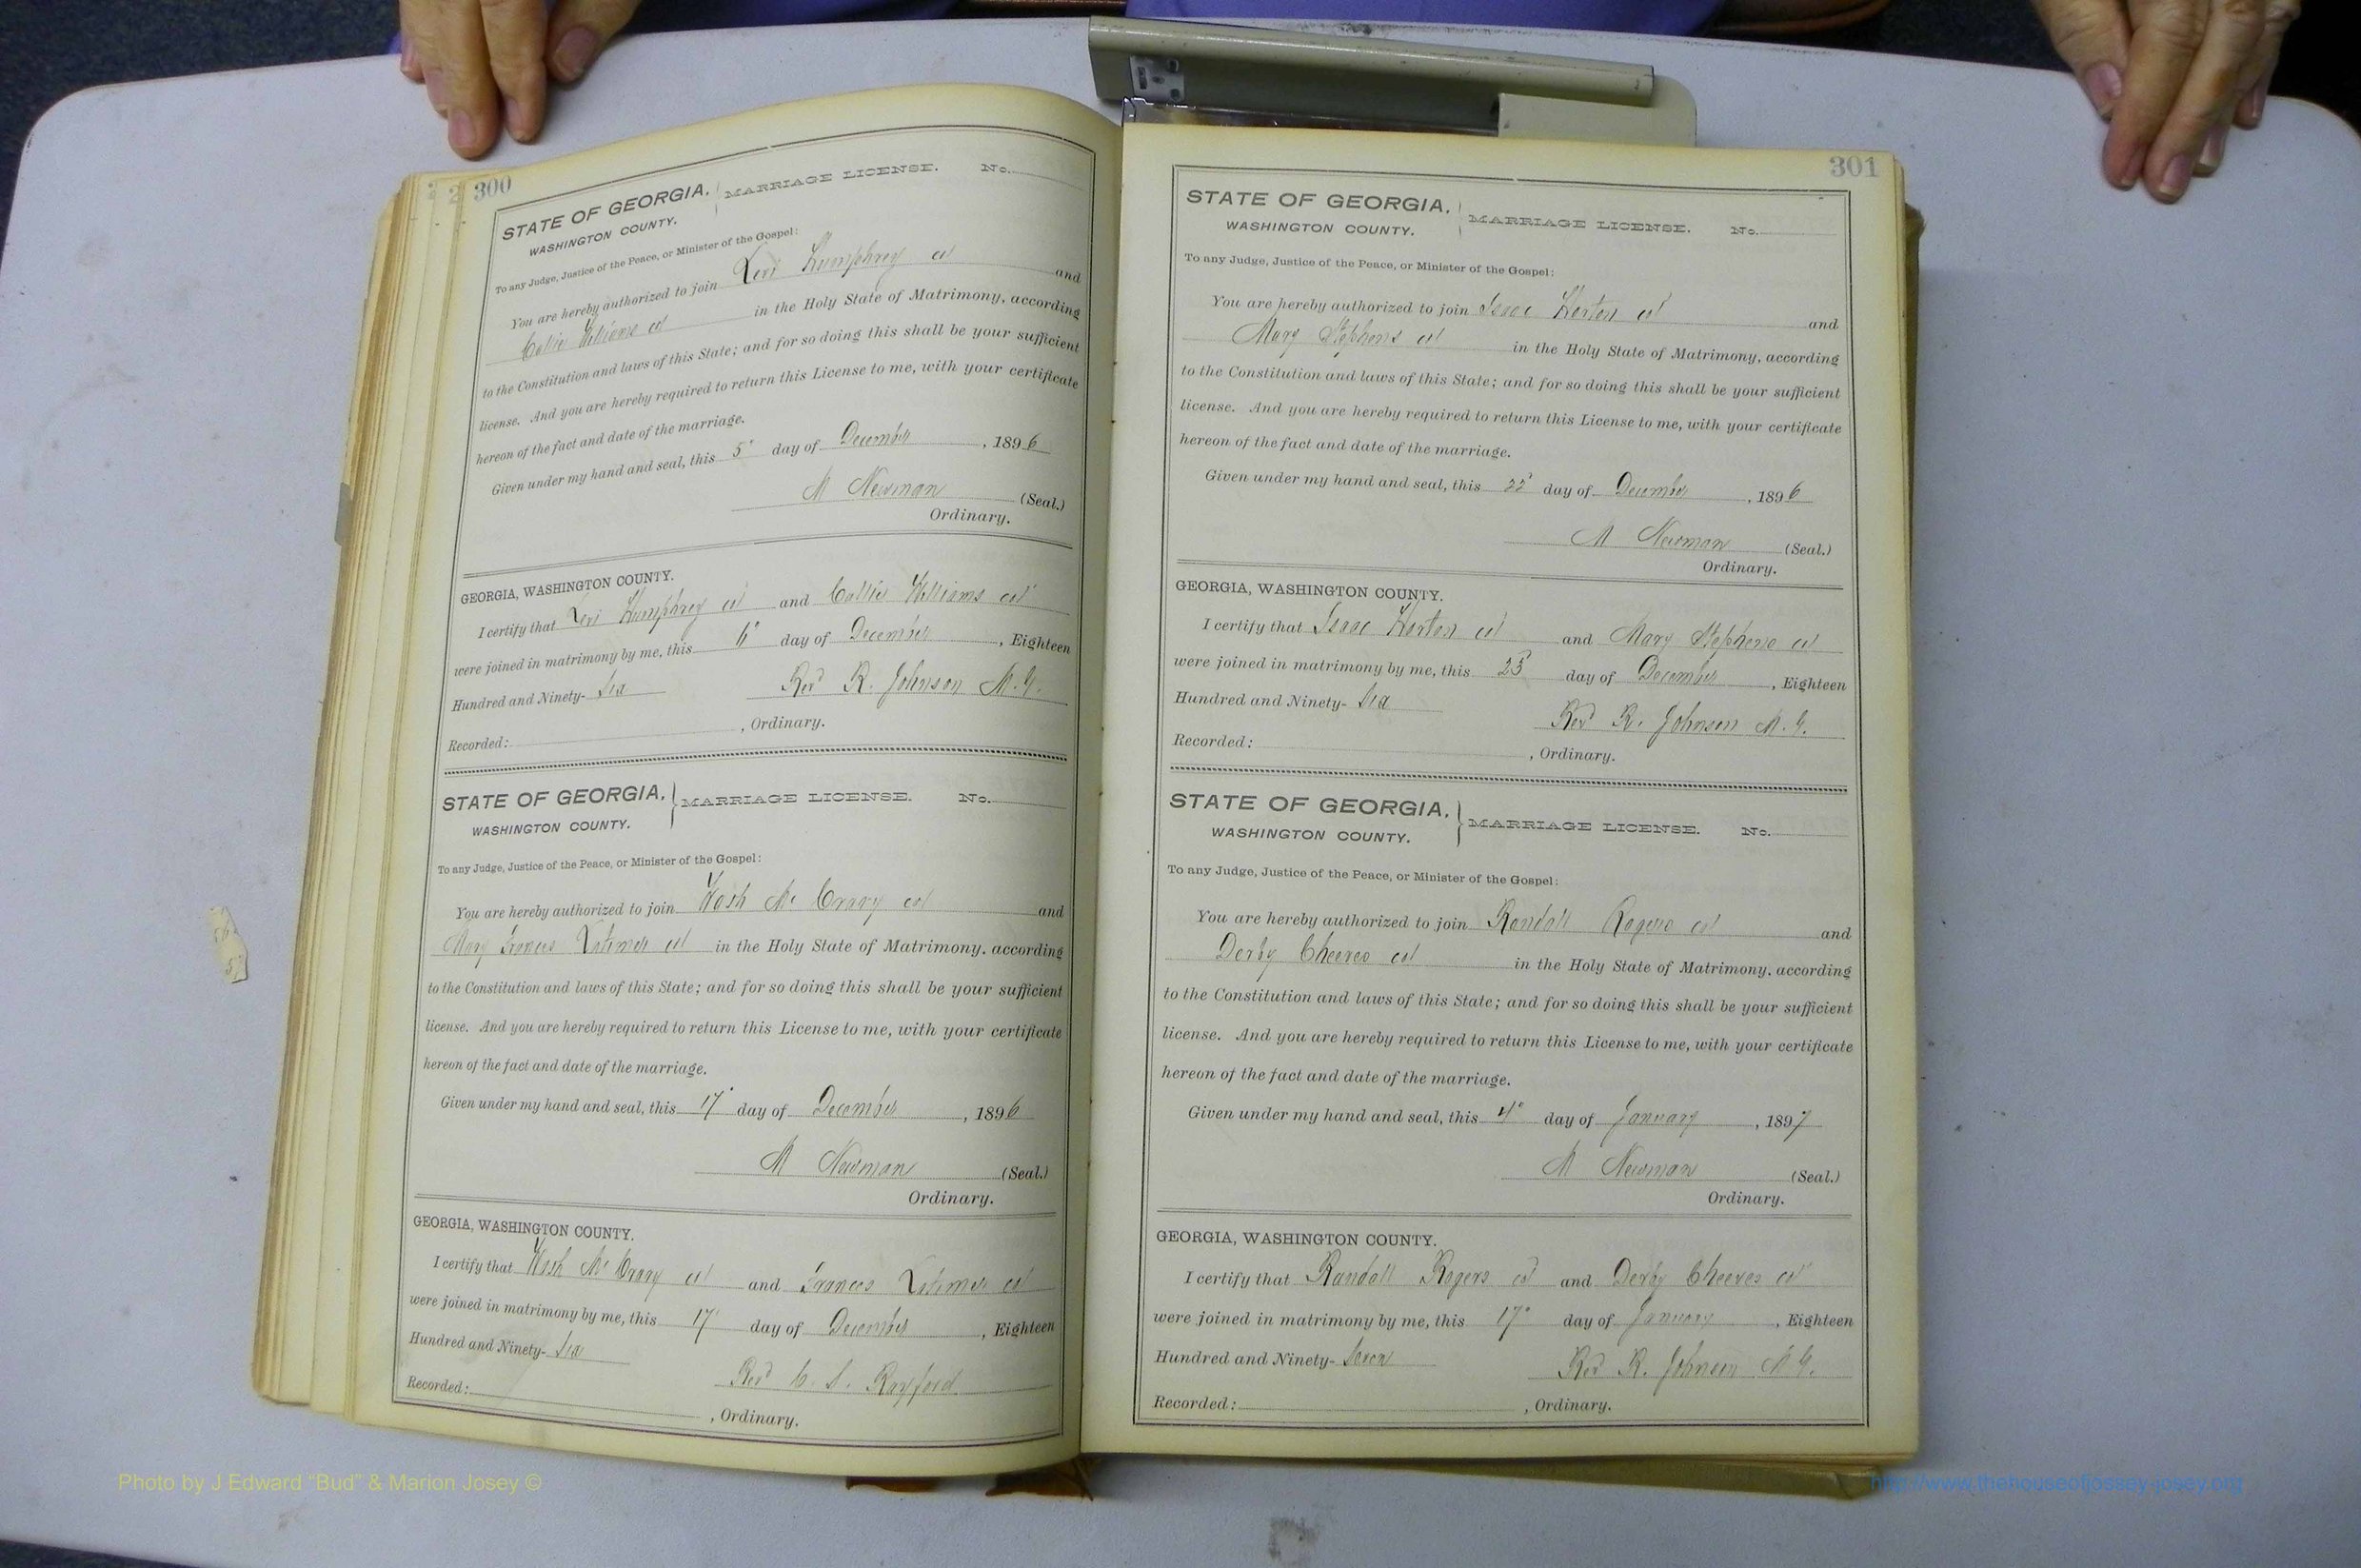 300
STATE OF GEORGIA. MARRIAGE LICENSE. No.
WASHINGTON COUNTY.
To any Judge, Justice of the Peace, or Minister of the Gospel:
You are hereby authorized to join Levi Humphrey col and
Callie Williams col in the Holy State of Matrimony, according
to the Constitution and laws of this State; and for so doing this shall be your sufficient
license. And you are hereby required to return this License to me, with your certificate
hereon of the fact and date of the marriage.
Given under my hand and seal, this 5" day of December, 1896
M Newman (Seal.)
Ordinary.
GEORGIA, WASHINGTON COUNTY.
I certify that Levi Humphrey col and Callie Williams col
were joined in matrimony by me, this 6" day of December, Eighteen
Hundred and Ninety-Six Rev R. Johnson M.G.
Recorded: , Ordinary.
STATE OF GEORGIA. } MARRIAGE LICENSE. No.
WASHINGTON COUNTY.
To any Judge, Justice of the Peace, or Minister of the Gospel:
You are hereby authorized to join Wash McCrary col and
Mary Frances Latimer col in the Holy State of Matrimony, according
to the Constitution and laws of this State; and for so doing this shall be your sufficient
license. And you are hereby required to return this License to me, with your certificate
hereon of the fact and date of the marriage.
Given under my hand and seal, this 17" day of December, 1896
M Newman (Seal.)
Ordinary.
GEORGIA, WASHINGTON COUNTY.
I certify that Wash McCrary col and Frances Latimer col
were joined in matrimony by me, this 17" day of December, Eighteen
Hundred and Ninety-Six Rev C. S. Rayford
Recorded: , Ordinary.
301
STATE OF GEORGIA. MARRIAGE LICENSE. No.
WASHINGTON COUNTY.
To any Judge, Justice of the Peace, or Minister of the Gospel:
You are hereby authorized to join Isaac Horton col and
Mary Stephens col in the Holy State of Matrimony, according
to the Constitution and laws of this State; and for so doing this shall be your sufficient
license. And you are hereby required to return this License to me, with your certificate
hereon of the fact and date of the marriage.
Given under my hand and seal, this 22" day of December, 1896
M Newman (Seal.)
Ordinary.
GEORGIA, WASHINGTON COUNTY.
I certify that Isaac Horton col and Mary Stephens col
were joined in matrimony by me, this 23" day of December, Eighteen
Hundred and Ninety-Six Rev R. Johnson M.G.
Recorded: , Ordinary.
STATE OF GEORGIA. } MARRIAGE LICENSE. No.
WASHINGTON COUNTY.
To any Judge, Justice of the Peace, or Minister of the Gospel:
You are hereby authorized to join Randall Rogers col and
Derby Cheeves col in the Holy State of Matrimony, according
to the Constitution and laws of this State; and for so doing this shall be your sufficient
license. And you are hereby required to return this License to me, with your certificate
hereon of the fact and date of the marriage.
Given under my hand and seal, this 4" day of January, 1897
M Newman (Seal.)
Ordinary.
GEORGIA, WASHINGTON COUNTY.
I certify that Randall Rogers col and Derby Cheeves col
were joined in matrimony by me, this 17" day of January, Eighteen
Hundred and Ninety-Seven Rev R. Johnson M.G.
Recorded: , Ordinary.
Photo by J Edward “Bud” & Marion Josey ©
http://www.thehouseofjossey-josey.org